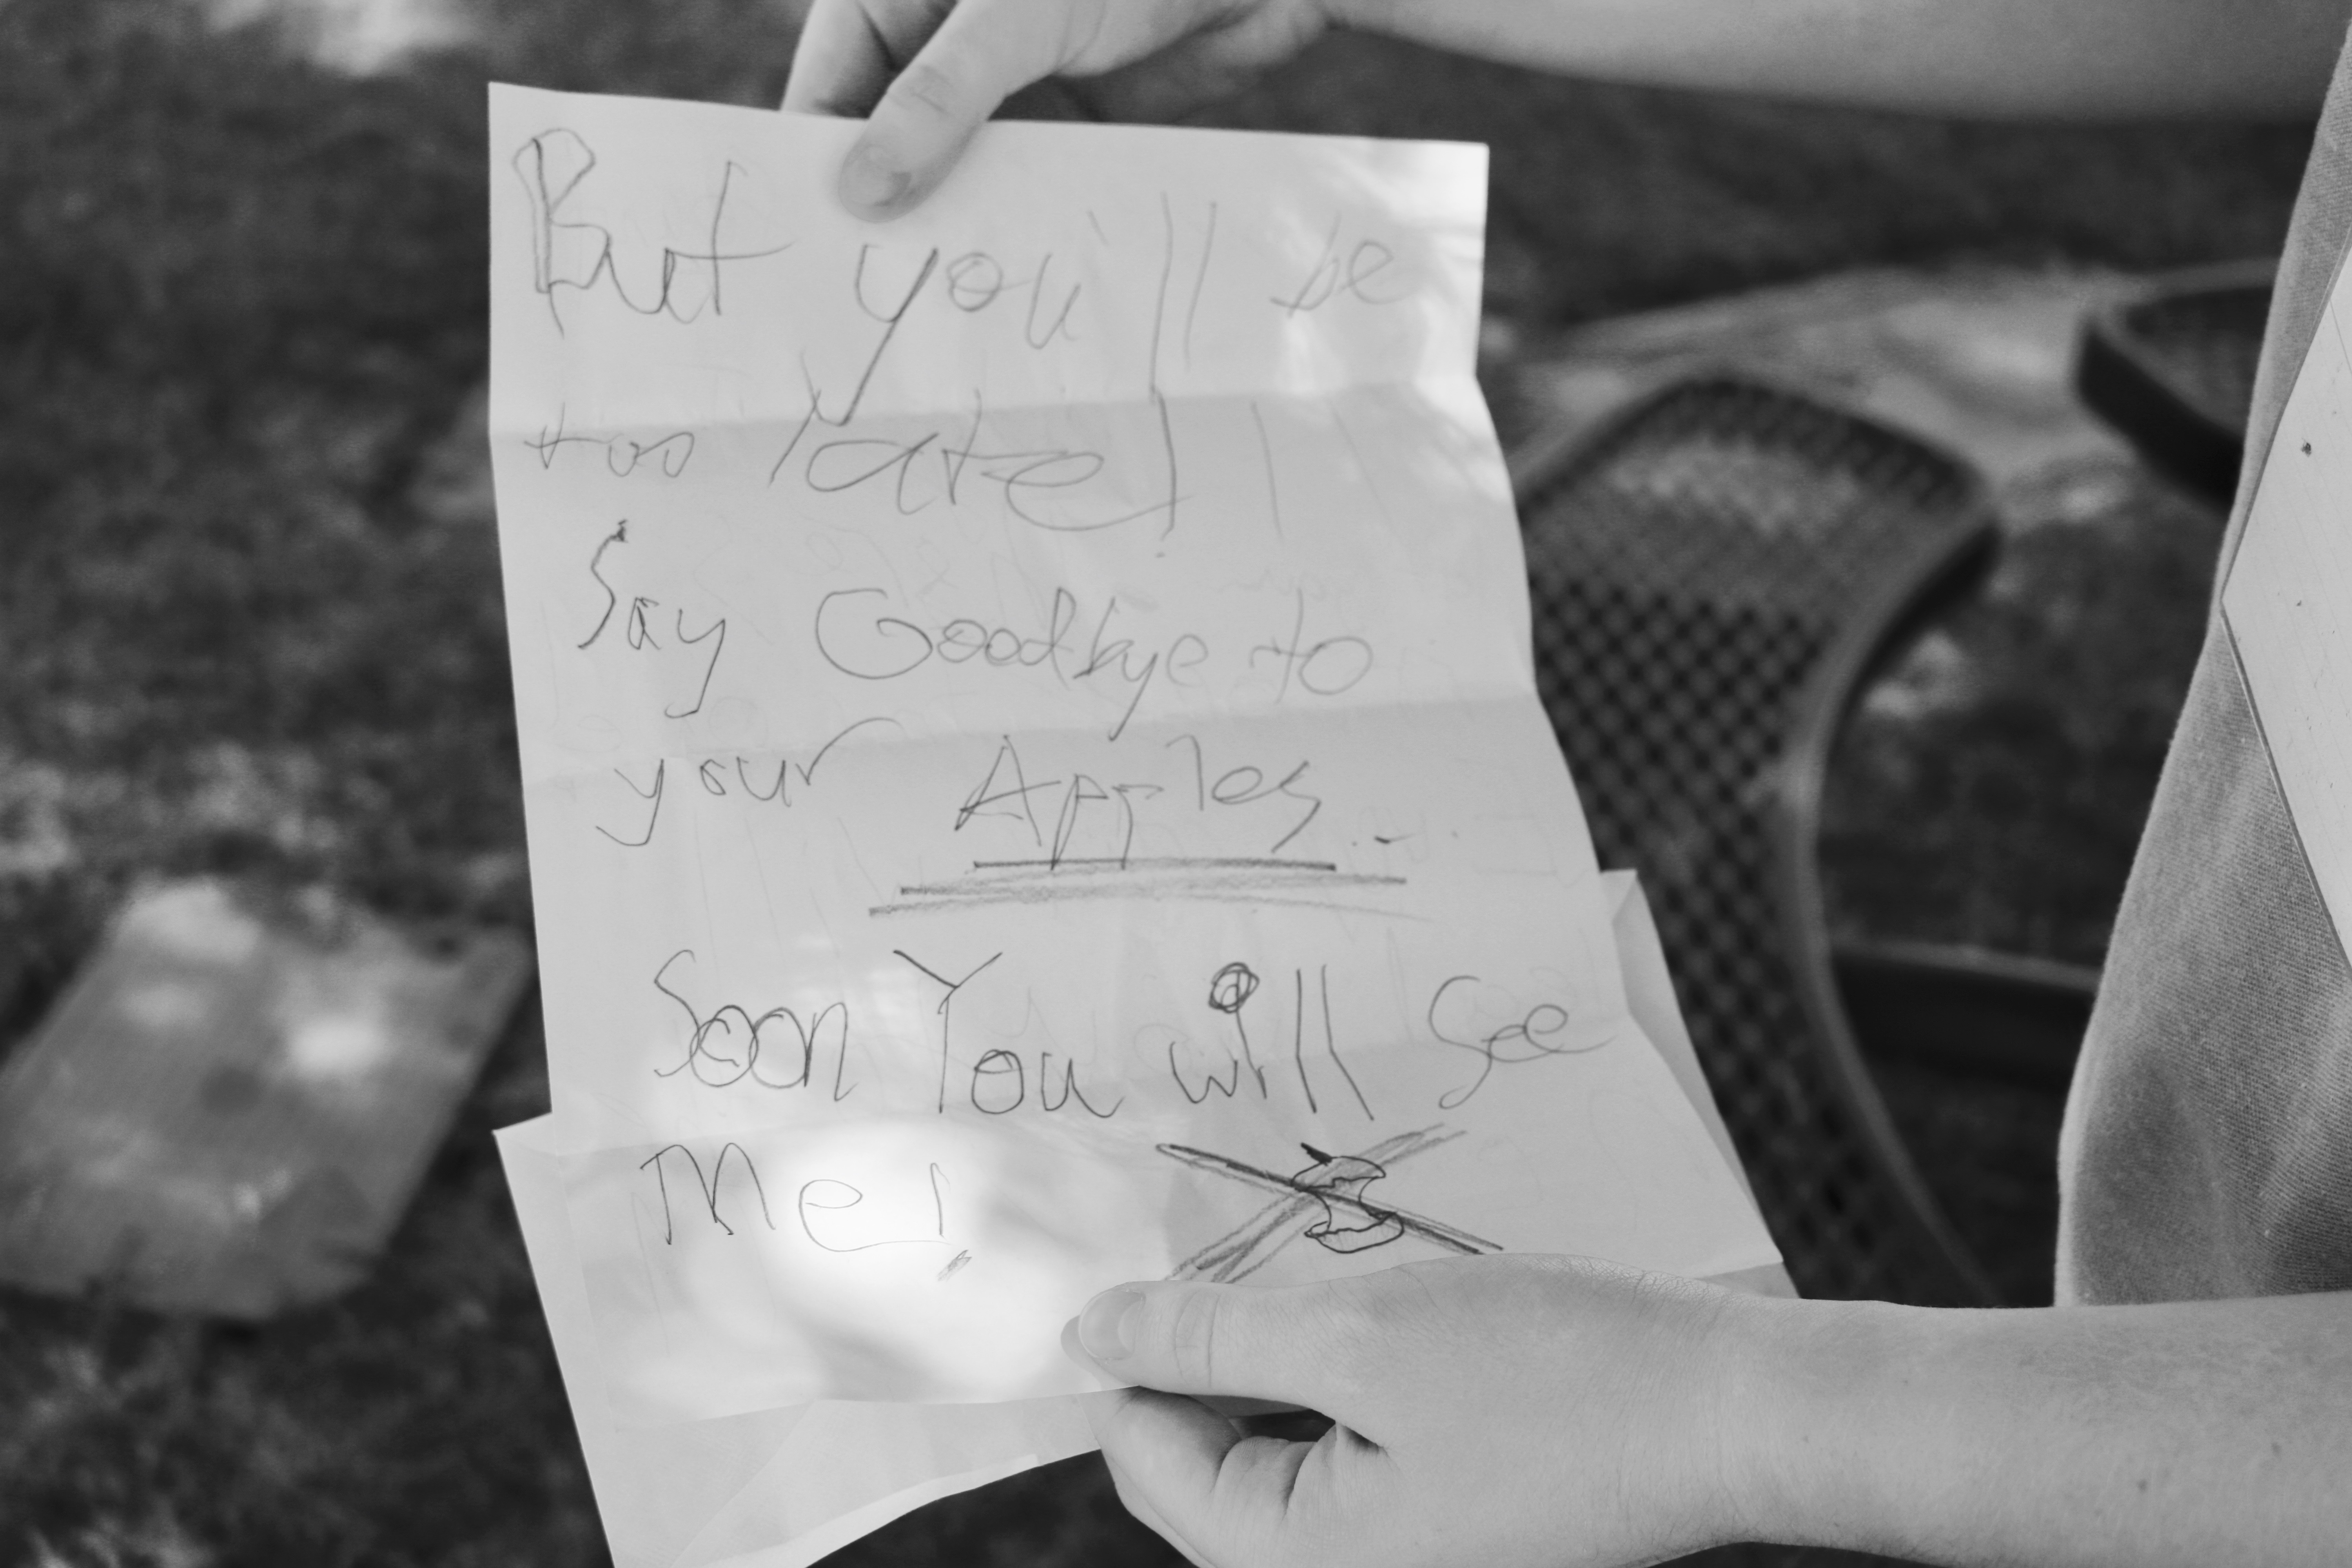 But you'll be
too late!
Say Goodbye to
your Apples...
Soon You will See
Me!